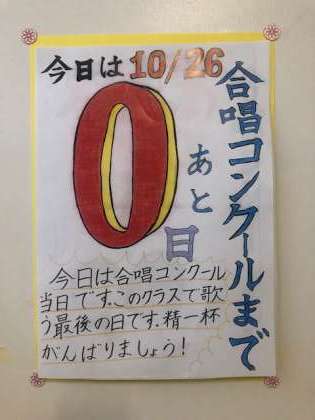 今日は10/26
合唱コンクールまで
あと
0
日
今日は合唱コンクール
当日です。このクラスで歌
う最後の日です。精一杯
がんばりましょう!